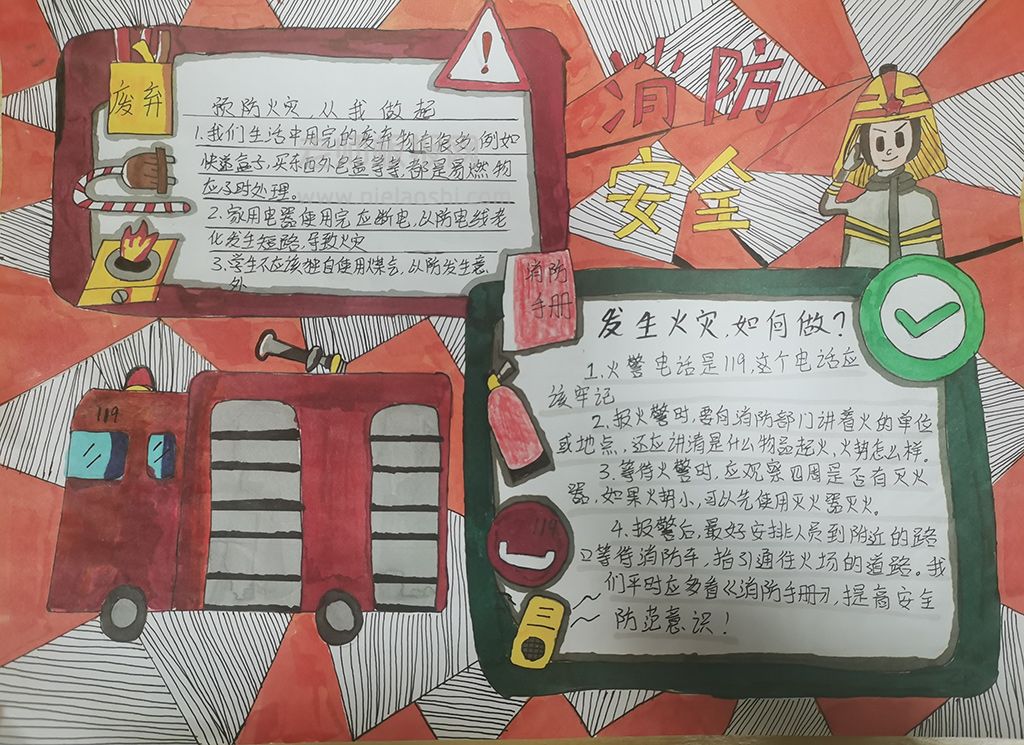 消防
安全
废弃
预防火灾,从我做起
1.我们生活中用完的废弃物有很多,例如
快递盒子,买东西外包盒等等,都是易燃物
应及时处理。
2.家用电器使用完应断电,以防电线老
化发生短路,导致火灾
3.学生不应该独自使用煤气,以防发生意
外
消防
手册
发生火灾,如何做?
1.火警电话是119,这个电话应
该牢记
2.报火警时,要向消防部门讲着火的单位
或地点,还应讲清是什么物品起火,火势怎么样。
3.等待火警时,应观察四周是否有灭火
器,如果火势小,可以先使用灭火器灭火。
4.报警后,最好安排人员到附近的路
口等待消防车,指引通往火场的道路。我
们平时应多看《消防手册》,提高安全
防范意识!
119
119